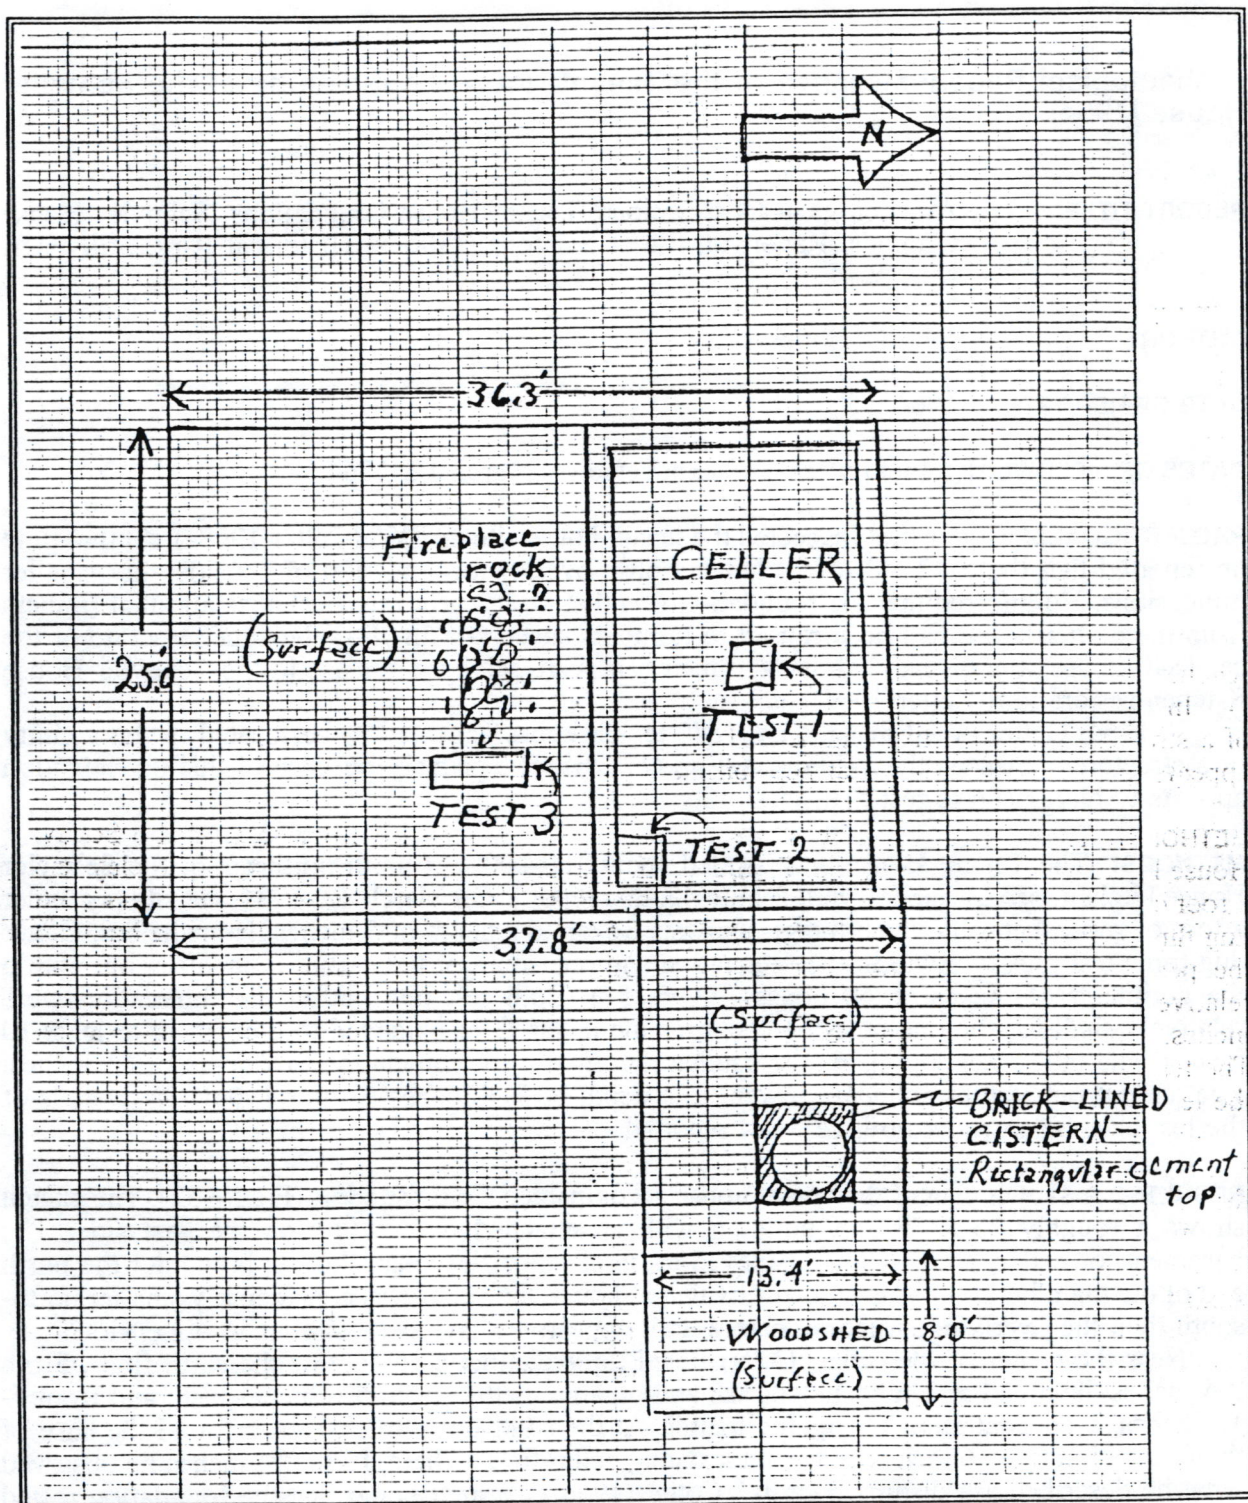 N
36.3'
Fireplace
rock
?
CELLER
(Surface)
25.0'
TEST 1
TEST 3
TEST 2
37.8'
(Surface)
BRICK-LINED
CISTERN-
Rectangular cement
top
13.4'
WOODSHED
8.0'
(Surface)